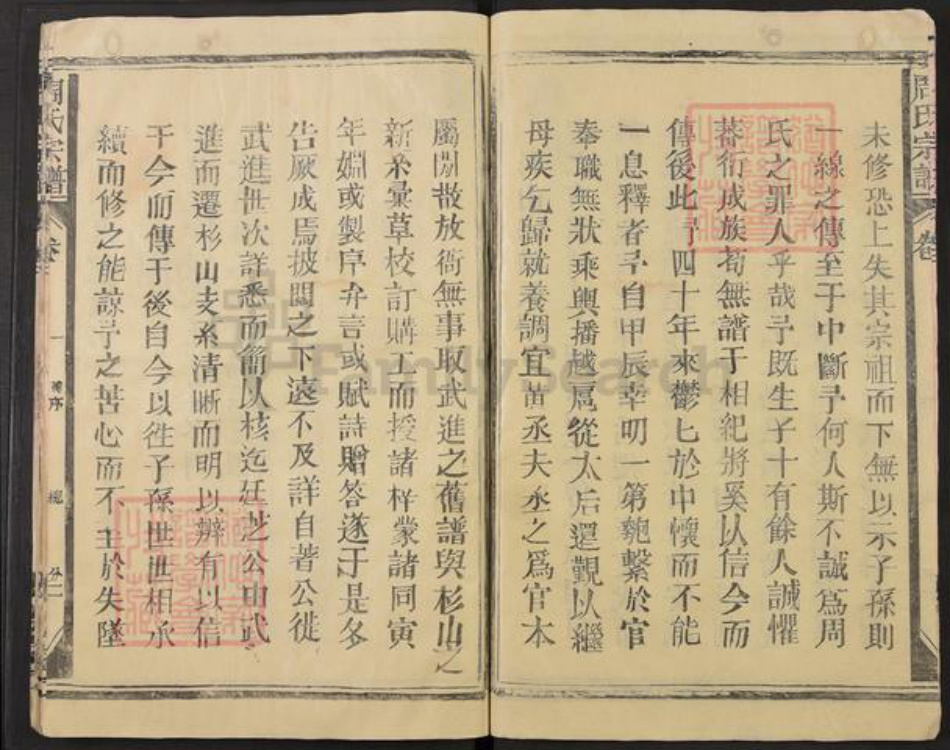 未修恐上失其宗祖而下無以示子孫則
一線之傳至于中斷予何人斯不誠爲周
氏之罪人乎哉予既生子十有餘人誠懼
蕃衍成族苟無譜于相紀將奚以信今而
傳後此予四十年來鬱匕於中懷而不能
一息釋者予自甲辰幸叨一第匏繫於官
奉職無狀乘輿播越扈從太后還覲以繼
母疾乞歸就養調宜黄丞夫丞之爲官本
屬閒散放衙無事取武進之舊譜與杉山之
新系彙草校訂購工而授諸梓蒙諸同寅
年姻或製序弁言或賦詩贈答遂于是冬
告厥成焉披閱之下遠不及詳自著公徙
武進世次詳悉而簡以核迄廷芝公由武
進而遷杉山支系清晰而明以辨有以信
于今而傳于後自今以徃子孫世世相承
續而修之能諒予之苦心而不至於失墜
周氏宗譜
卷
一
周氏宗譜
卷